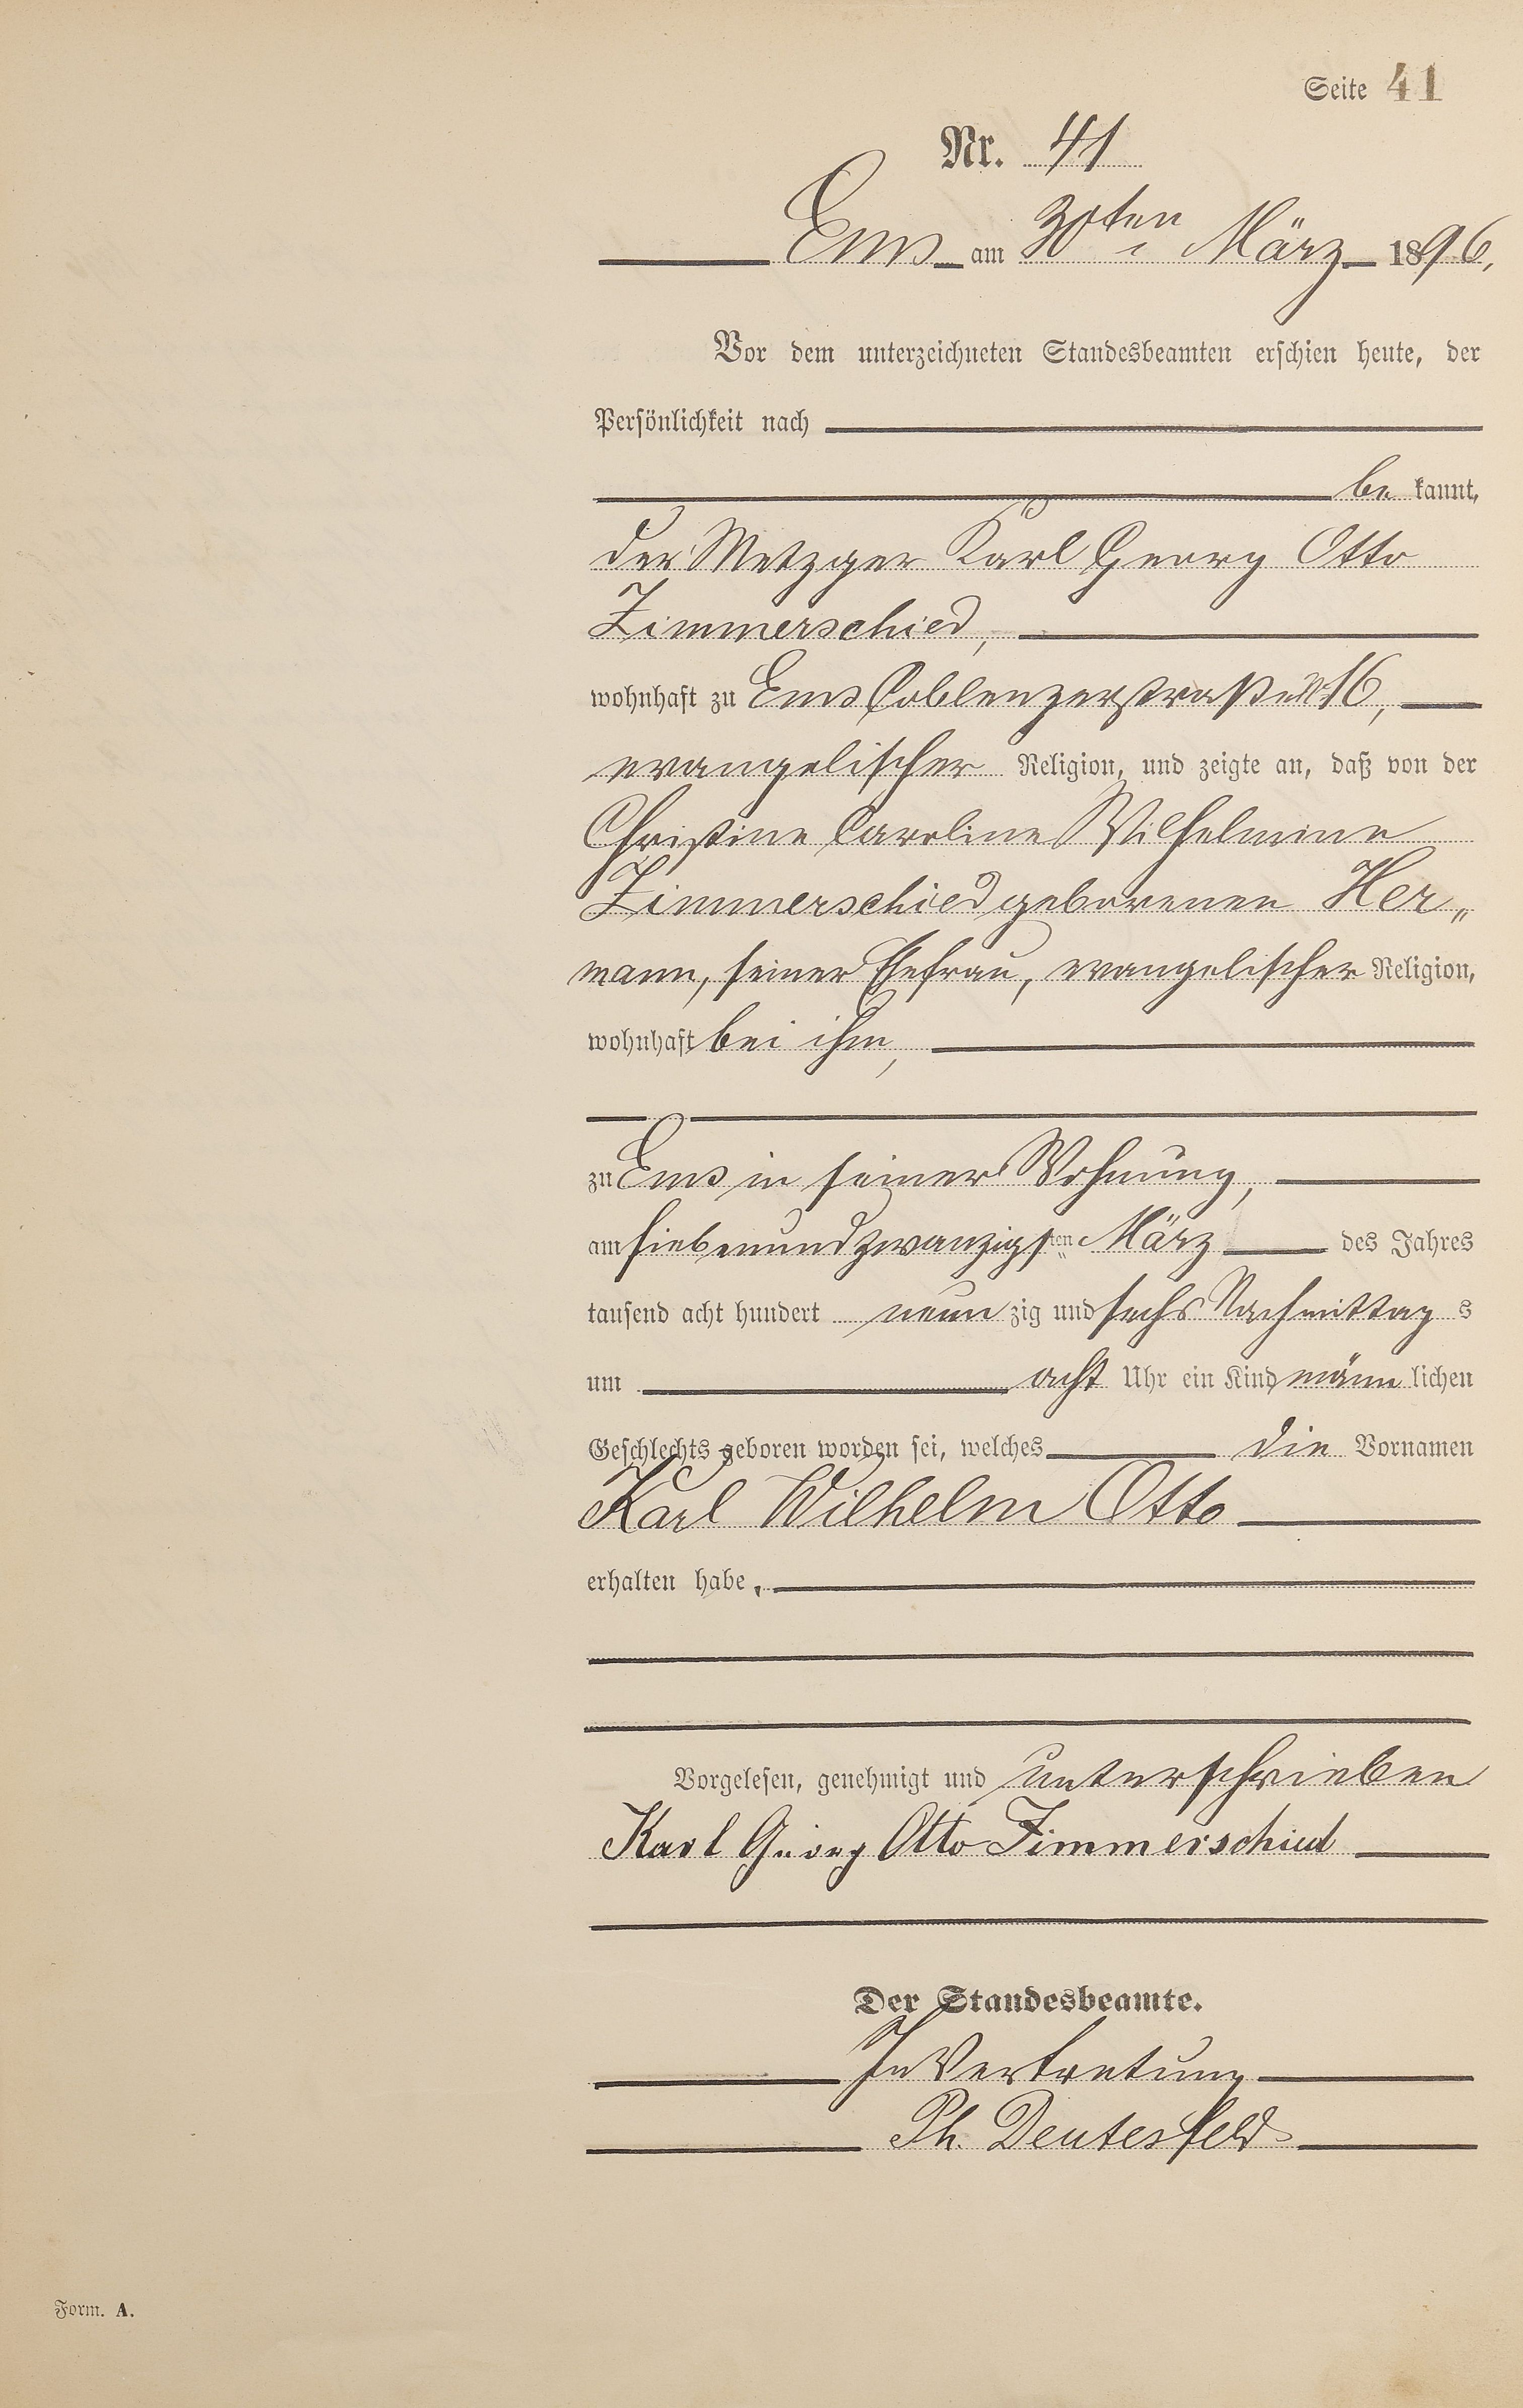 Seite 41
Nr. 41
Ems am 30ten März 1896.
Vor dem unterzeichneten Standesbeamten erschien heute, der
Persönlichkeit nach
be kannt,
der Metzger Karl Georg Otto
Zimmerschied,
wohnhaft zu Ems Coblenzerstraße № 16,
evangelischer Religion, und zeigte an, daß von der
Christine Caroline Wilhelmine
Zimmerschied geborenen Her„
mann, seiner Ehefrau, evangelischer Religion,
wohnhaft bei ihm,
zu Ems in seiner Wohnung,
am siebenundzwanzigsten März des Jahres
tausend acht hundert neun zig und sechs Nachmittag s
um acht Uhr ein Kind männ lichen
Geschlechts geboren worden sei, welches die Vornamen
Karl Wilhelm Otto
erhalten habe.
Vorgelesen, genehmigt und unterschrieben
Karl Georg Otto Zimmerschied
Der Standesbeamte.
In Vertretung
Ph. Deutesfeld
Form. A.